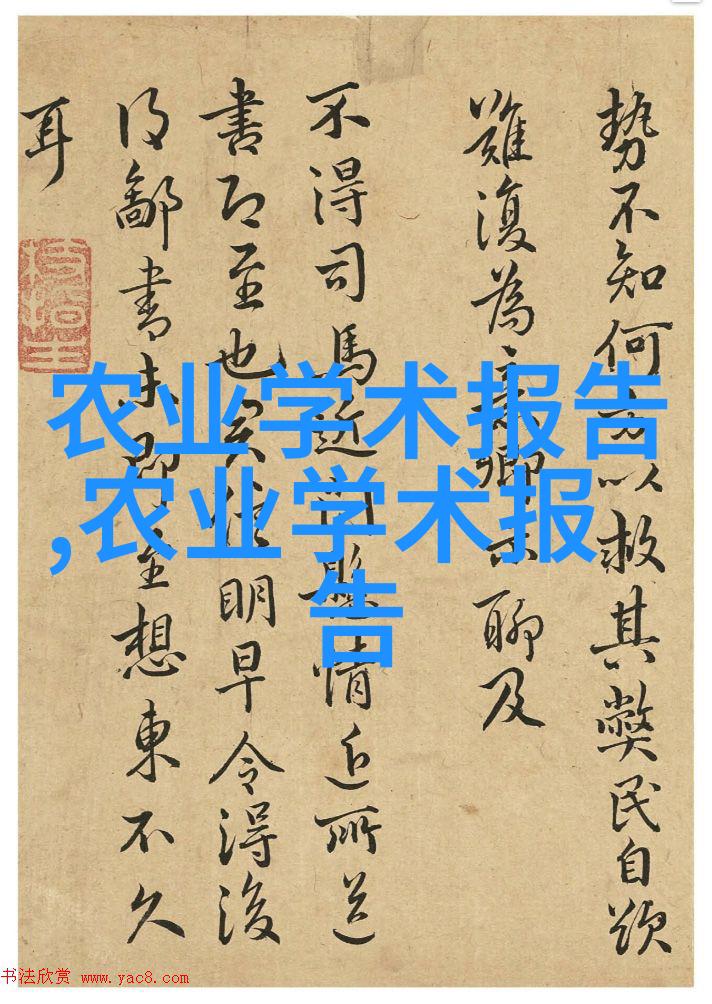 勢不知何以救其弊民自
難復為卿聊及
不得司馬近問懸情近所送
書即至也信明早令得後
得鄙書未即至想東不久
耳
农业学术报告
,农业学术报
告
书法欣赏 www.yac8.com